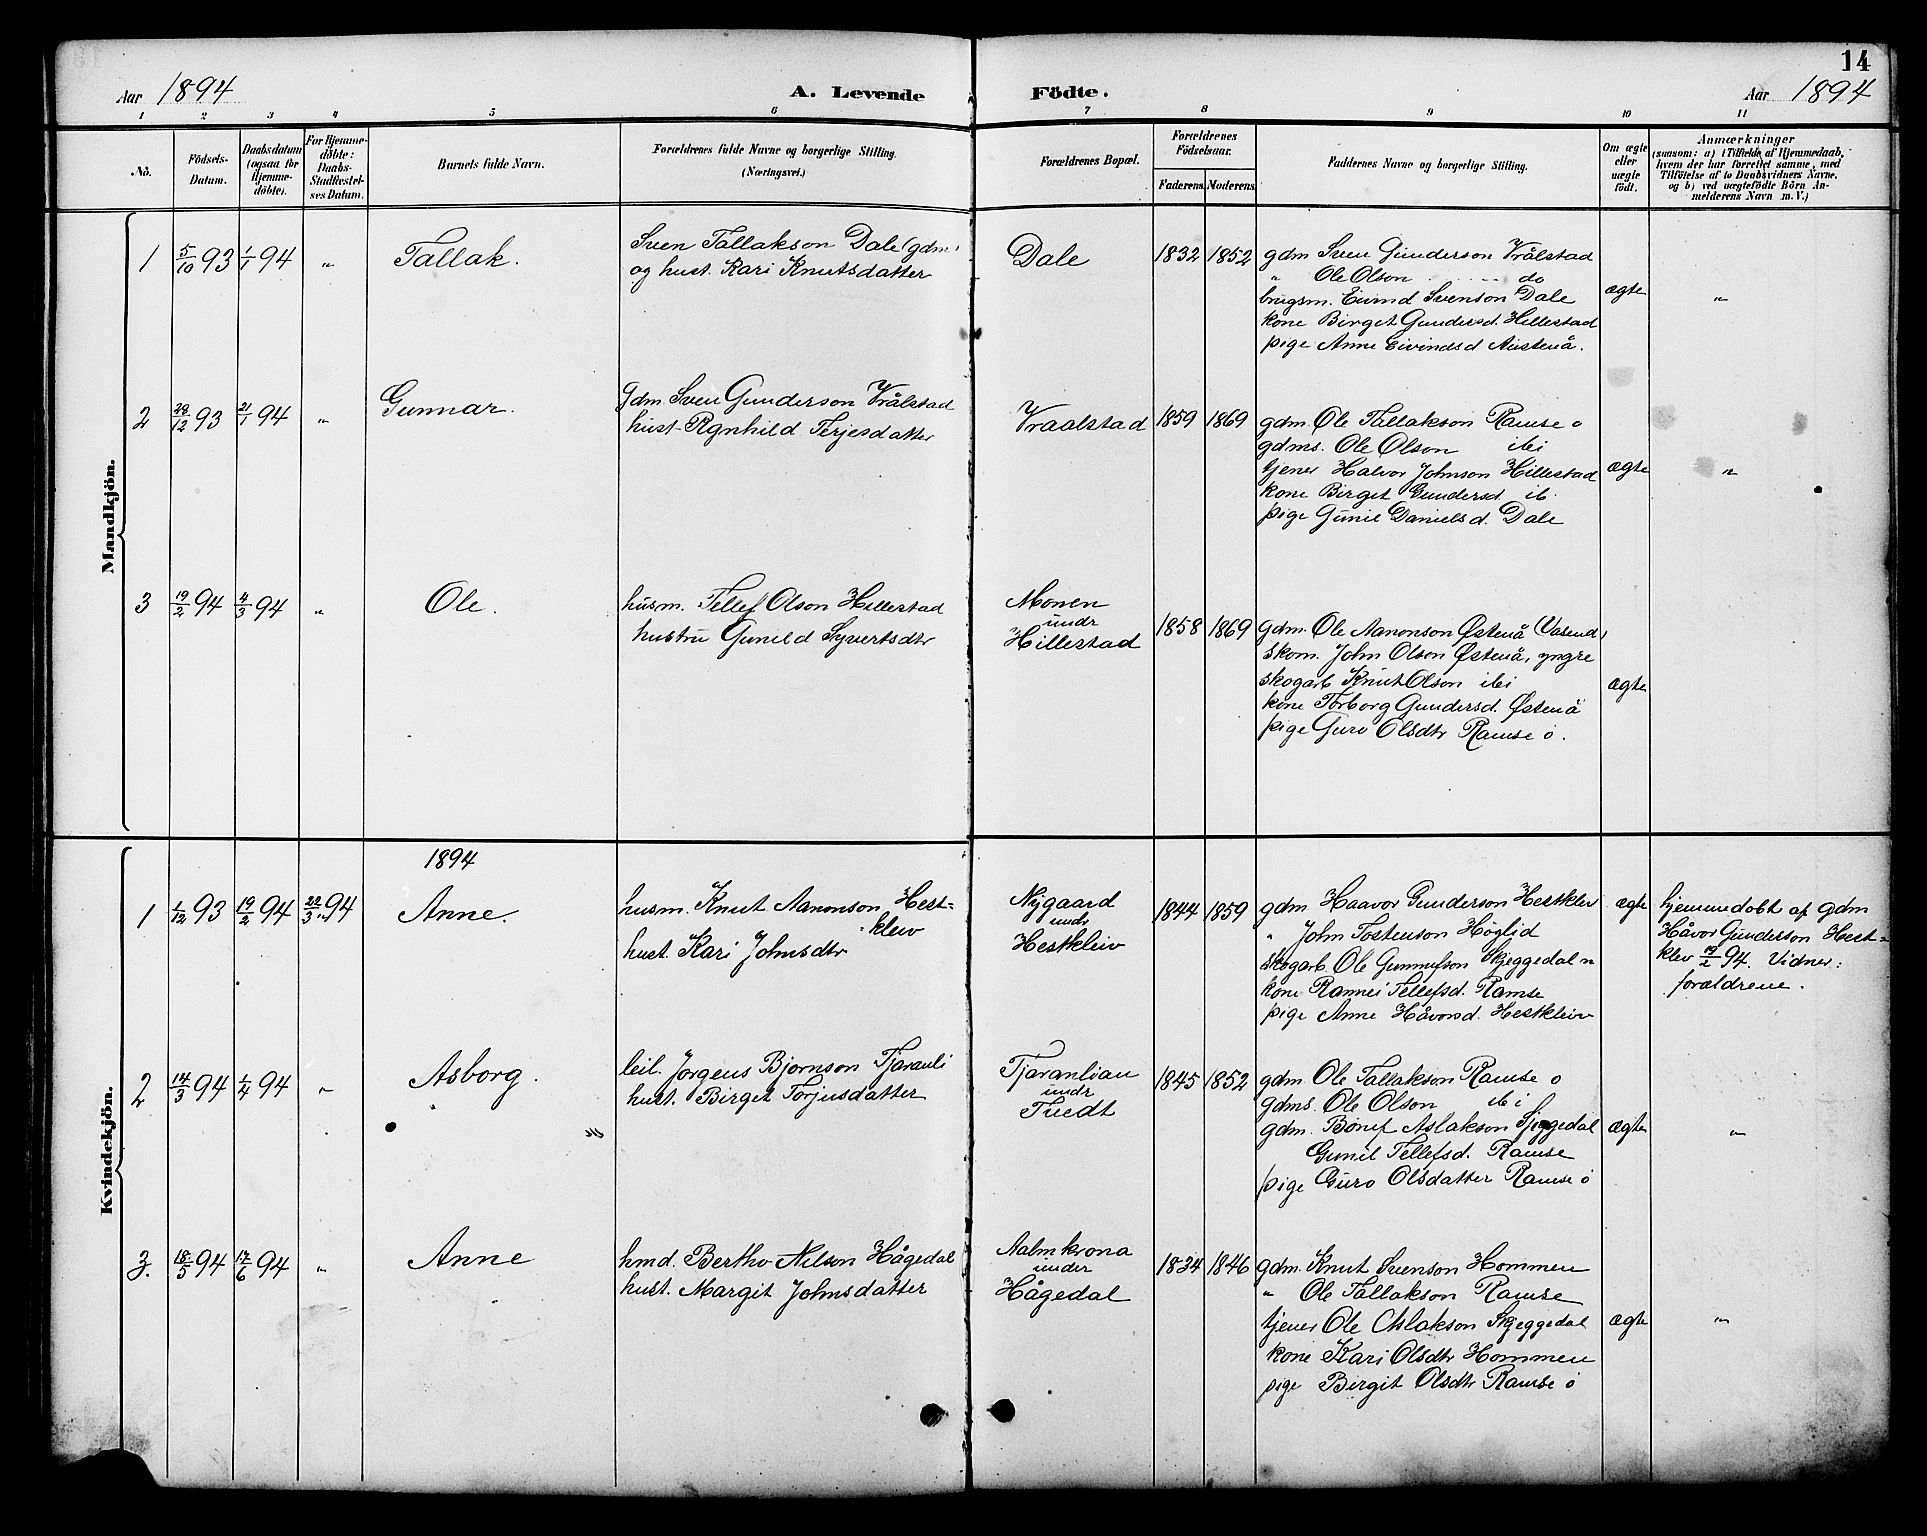 14
Aar 1894
A. Levende Födte.
Aar 1894
1 2 3 4 5 6 7 8 9 10 11
No.
Födsels-
Datum.
Daabsdatum
(ogsaa for
Hjemme-
döbte).
For Hjemme-
döbte:
Daabs-
Stadfæstel-
ses Datum.
Barnets fulde Navn.
Forældrenes fulde Navne og borgerlige Stilling.
(Næringsvei.)
Forældrenes Bopæl.
Forældrenes
Födselsaar.
Faderens. Moderens.
Faddernes Navne og borgerlige Stilling.
Om ægte
eller
uægte
födt.
Anmærkninger
(saasom: a) i Tilfælde af Hjemmedaab,
hvem der har forrettet samme, med
Tilföielse af to Daabsvidners Navne,
og b) ved uægtefödte Börn An-
melderens Navn m. V.)
Mandkjön.
1 5/10 93 1/1 94 " Tallak.
Sven Tallakson Dale (gdm.
og hust. Kari Knutsdatter
Dale 1832 1852
gdm Sven Gunderson Vrålstad
" Ole Olson do
brugsm. Eivind Svenson Dale
kone Birget Gundersd. Hillestad
pige Anne Eivindsd Austenå.
ægte "
2 29/12 93 21/1 94 " Gunnar.
Gdm Sven Gunderson Vrålstad
hust. Rgnhild Terjesdatter
Vraalstad 1859 1869
gdm. Ole Tallakson Ramse o
gdms. Ole Olson ibi
tjener Halvor Johnson Hillestad
kone Birget Gundersd. ib.
pige Gunil Danielsd. Dale
ægte "
3 19/2 94 4/3 94 " Ole.
husm. Tellef Olson Hillestad
hustru Gunild Syvertsdtr
Monen
undr
Hillestad
1858 1869
gdm. Ole Aanonson Østenå (Vasend)
skom. John Olson Østenå, yngre
skogarb Knut Olson ibi
kone Torborg Gundersd. Østenå
pige Guro Olsdtr Ramse ö.
ægte
Kvindekjön.
1894
1 1/12 93 19/2 94 22/3 94 Anne.
husm. Knut Aanonson Hest-
kleiv
hust. Kari Johnsdtr
Nygaard
undr
Hestkleiv
1844 1859
gdm Haavor Gunderson Hestkleiv
" John Tostenson Höglid
skogarb. Ole Gunnufson Skjeggedal n
kone Rannei Tellefsd. Ramse
pige Anne Håvorsd. Hestkleiv
ægte
hjemmedöbt af gdm
Håvor Gunderson Hest-
klev 19/2 94. Vidner:
forældrene.
2 14/3 94 1/4 94 " Asborg.
leil. Jörgens Bjornson Tjaranli
hust. Birget Torjusdatter
Tjaranlian
undr
Tvedt
1845 1852
gdm. Ole Tallakson Ramse o
gdms. Ole Olson ibi
gdm. Bonef Aslakson Sjeggedal
Gunil Tellefsd. Ramse
pige Guro Olsdatter Ramse ö
ægte "
3. 18/5 94 17/6 94 " Anne
hmd. Bertho Nilson Hågedal
hust. Margit Johnsdatter
Aalmkrona
under
Hågedal
1834 1846
gdm. Knut Svenson Hommen
" Ole Tallakson Ramse
tjener Ole Aslakson Skjeggedal
kone Kari Olsdtr Hommen
pige Birgit Olsdtr Ramse ö
ægte "